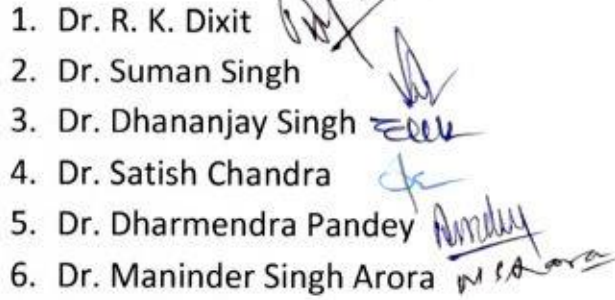 1. Dr. R. K. Dixit
2. Dr. Suman Singh
3. Dr. Dhananjay Singh
4. Dr. Satish Chandra
5. Dr. Dharmendra Pandey
6. Dr. Maninder Singh Arora M S Arora